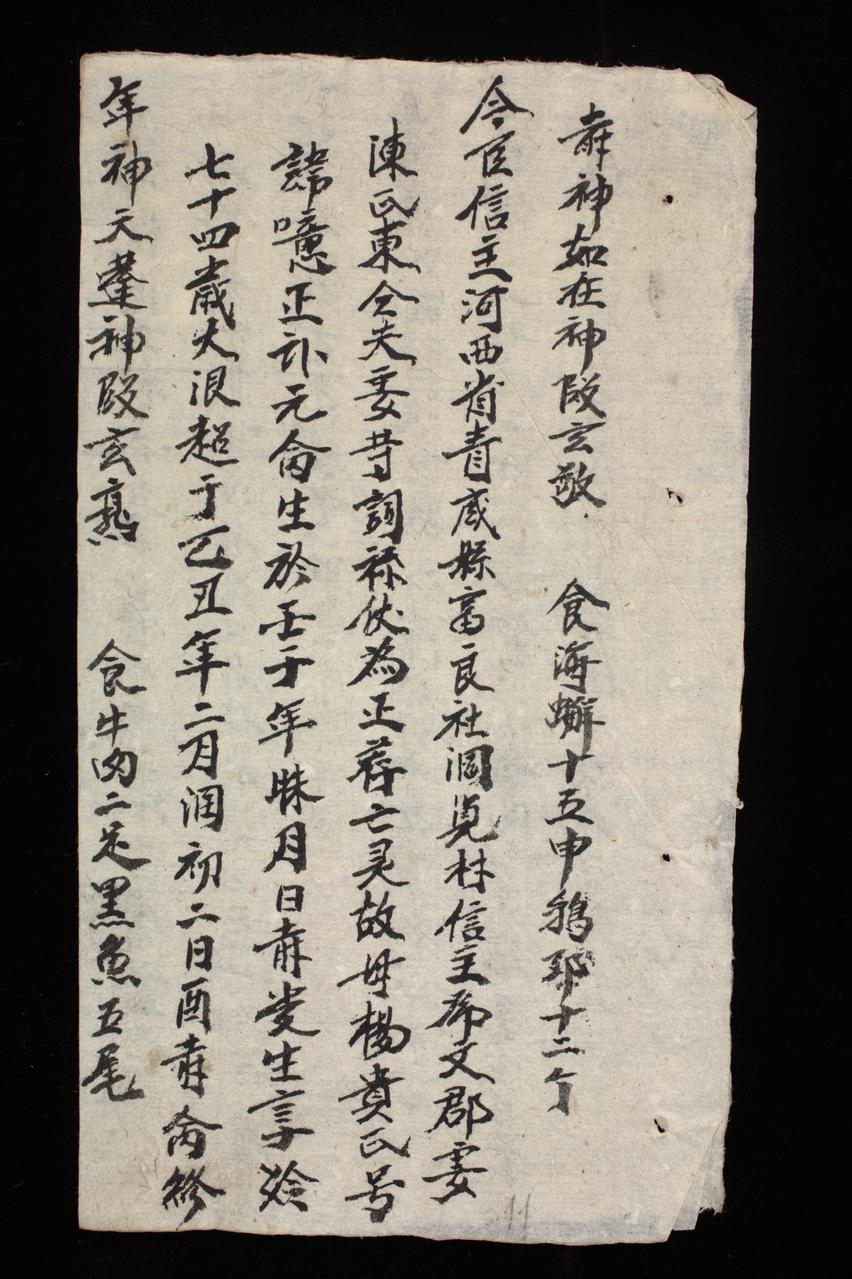 旹神如在神殿玄敬 食海蠏十五申鵝卵十二个
今臣信主河西省青威縣富良社洞覓村信主席文郡妻
陳氏東仝夫妻等詞祿伏為正薦亡灵故母楊貴氏号
諱噫正訃元命生於壬子年昧月日旹受生享
七十四歲大限超于乙丑年二月润初二日酉旹命終
年神天蓬神殿玄熟 食牛肉二足黑魚五尾
11